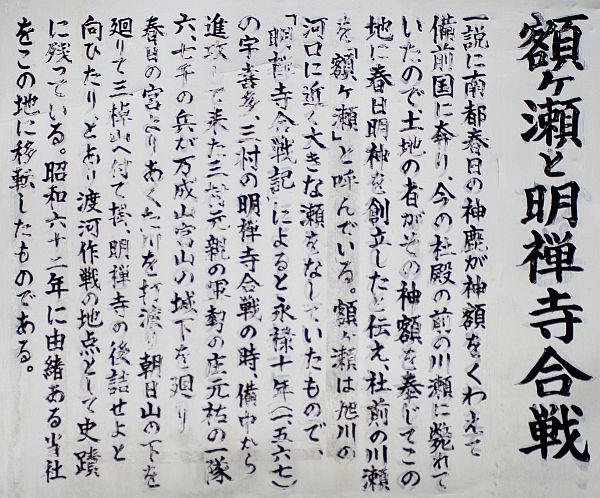 額ヶ瀬と明禅寺合戦
一説に南都春日の神鹿が神額をくわえて
備前国に奔り今の社殿の前の川瀬に斃れて
いたので、土地の者がその神額を奉じてこの
地に春日明神を創立したと伝え、社前の川瀬
を「額ヶ瀬」と呼んでいる。額ヶ瀬は旭川の
河口に近く大きな瀬をなしていたもので、
「明禅寺合戦記」によると永禄十年(一五六七)
の宇喜多、三村の明禅寺合戦の時、備中から
進攻して来た三村元親の軍勢の庄元祐の一隊
六、七千の兵が万成山富山の城下を廻り
春日の宮よりあく 川を打渡り朝日山の下を
廻りて三棹山へ付て掛、明禅寺の後詰せよと
向ひたり、とあり渡河作戦の地点として史蹟
に残っている。昭和六十二年に由緒ある当社
をこの地に移転したものである。